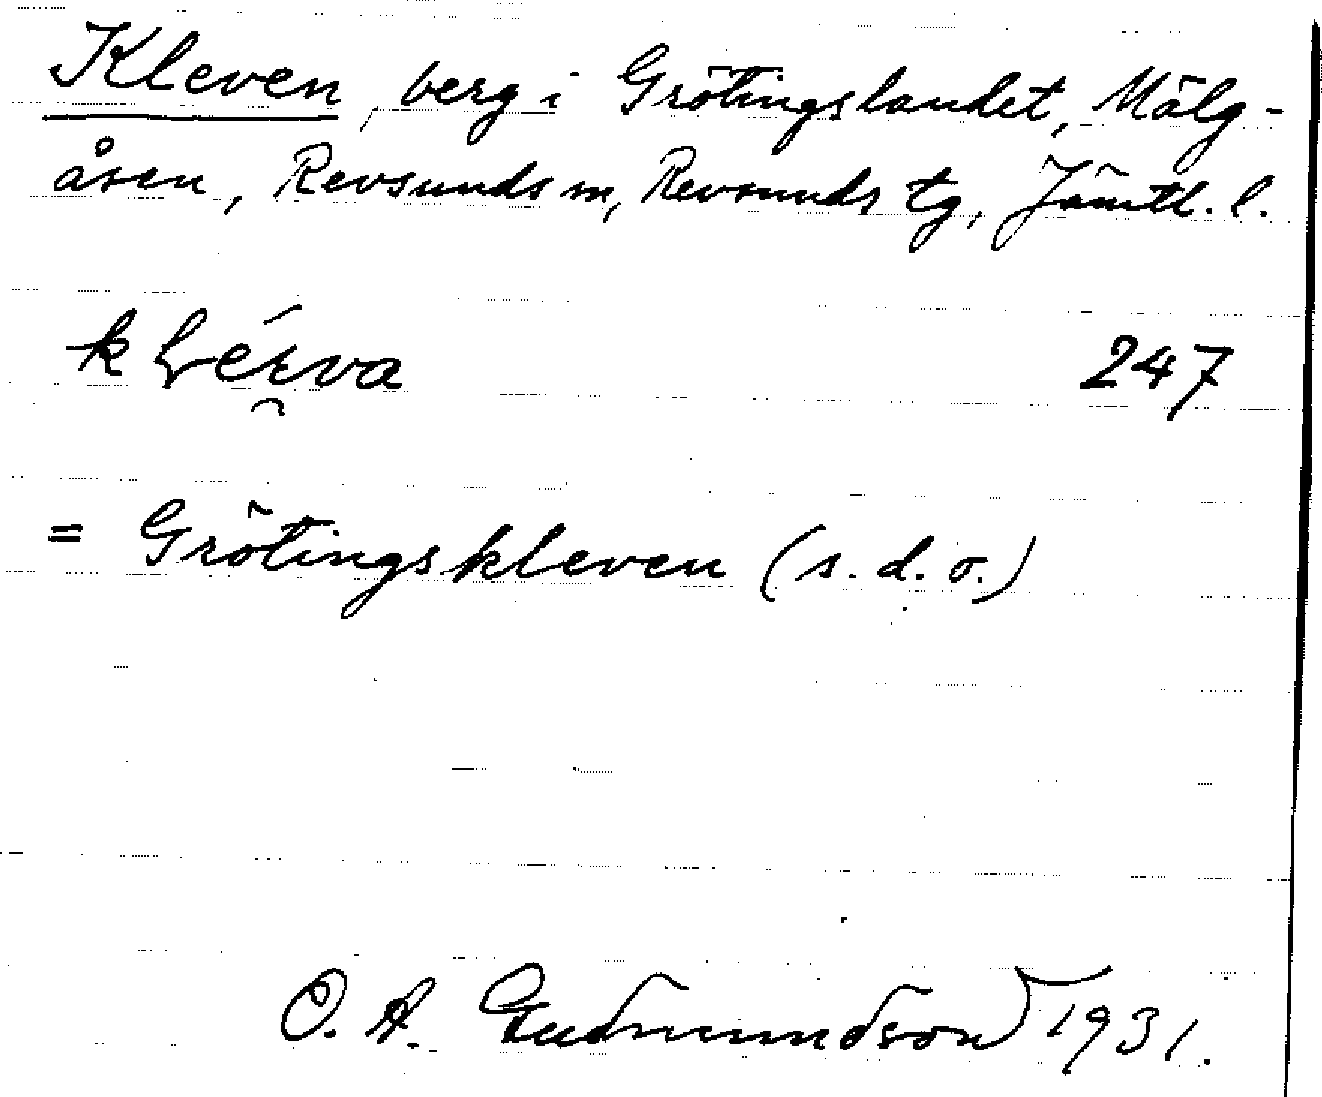 Kleven, berg i Grötingslandet, Mälg-
åsen, Revsunds sn, Revsunds tg, Jämtl. l.
247
= Grötingskleven (s. d. o.)
O. A. Gudmundson 1931.